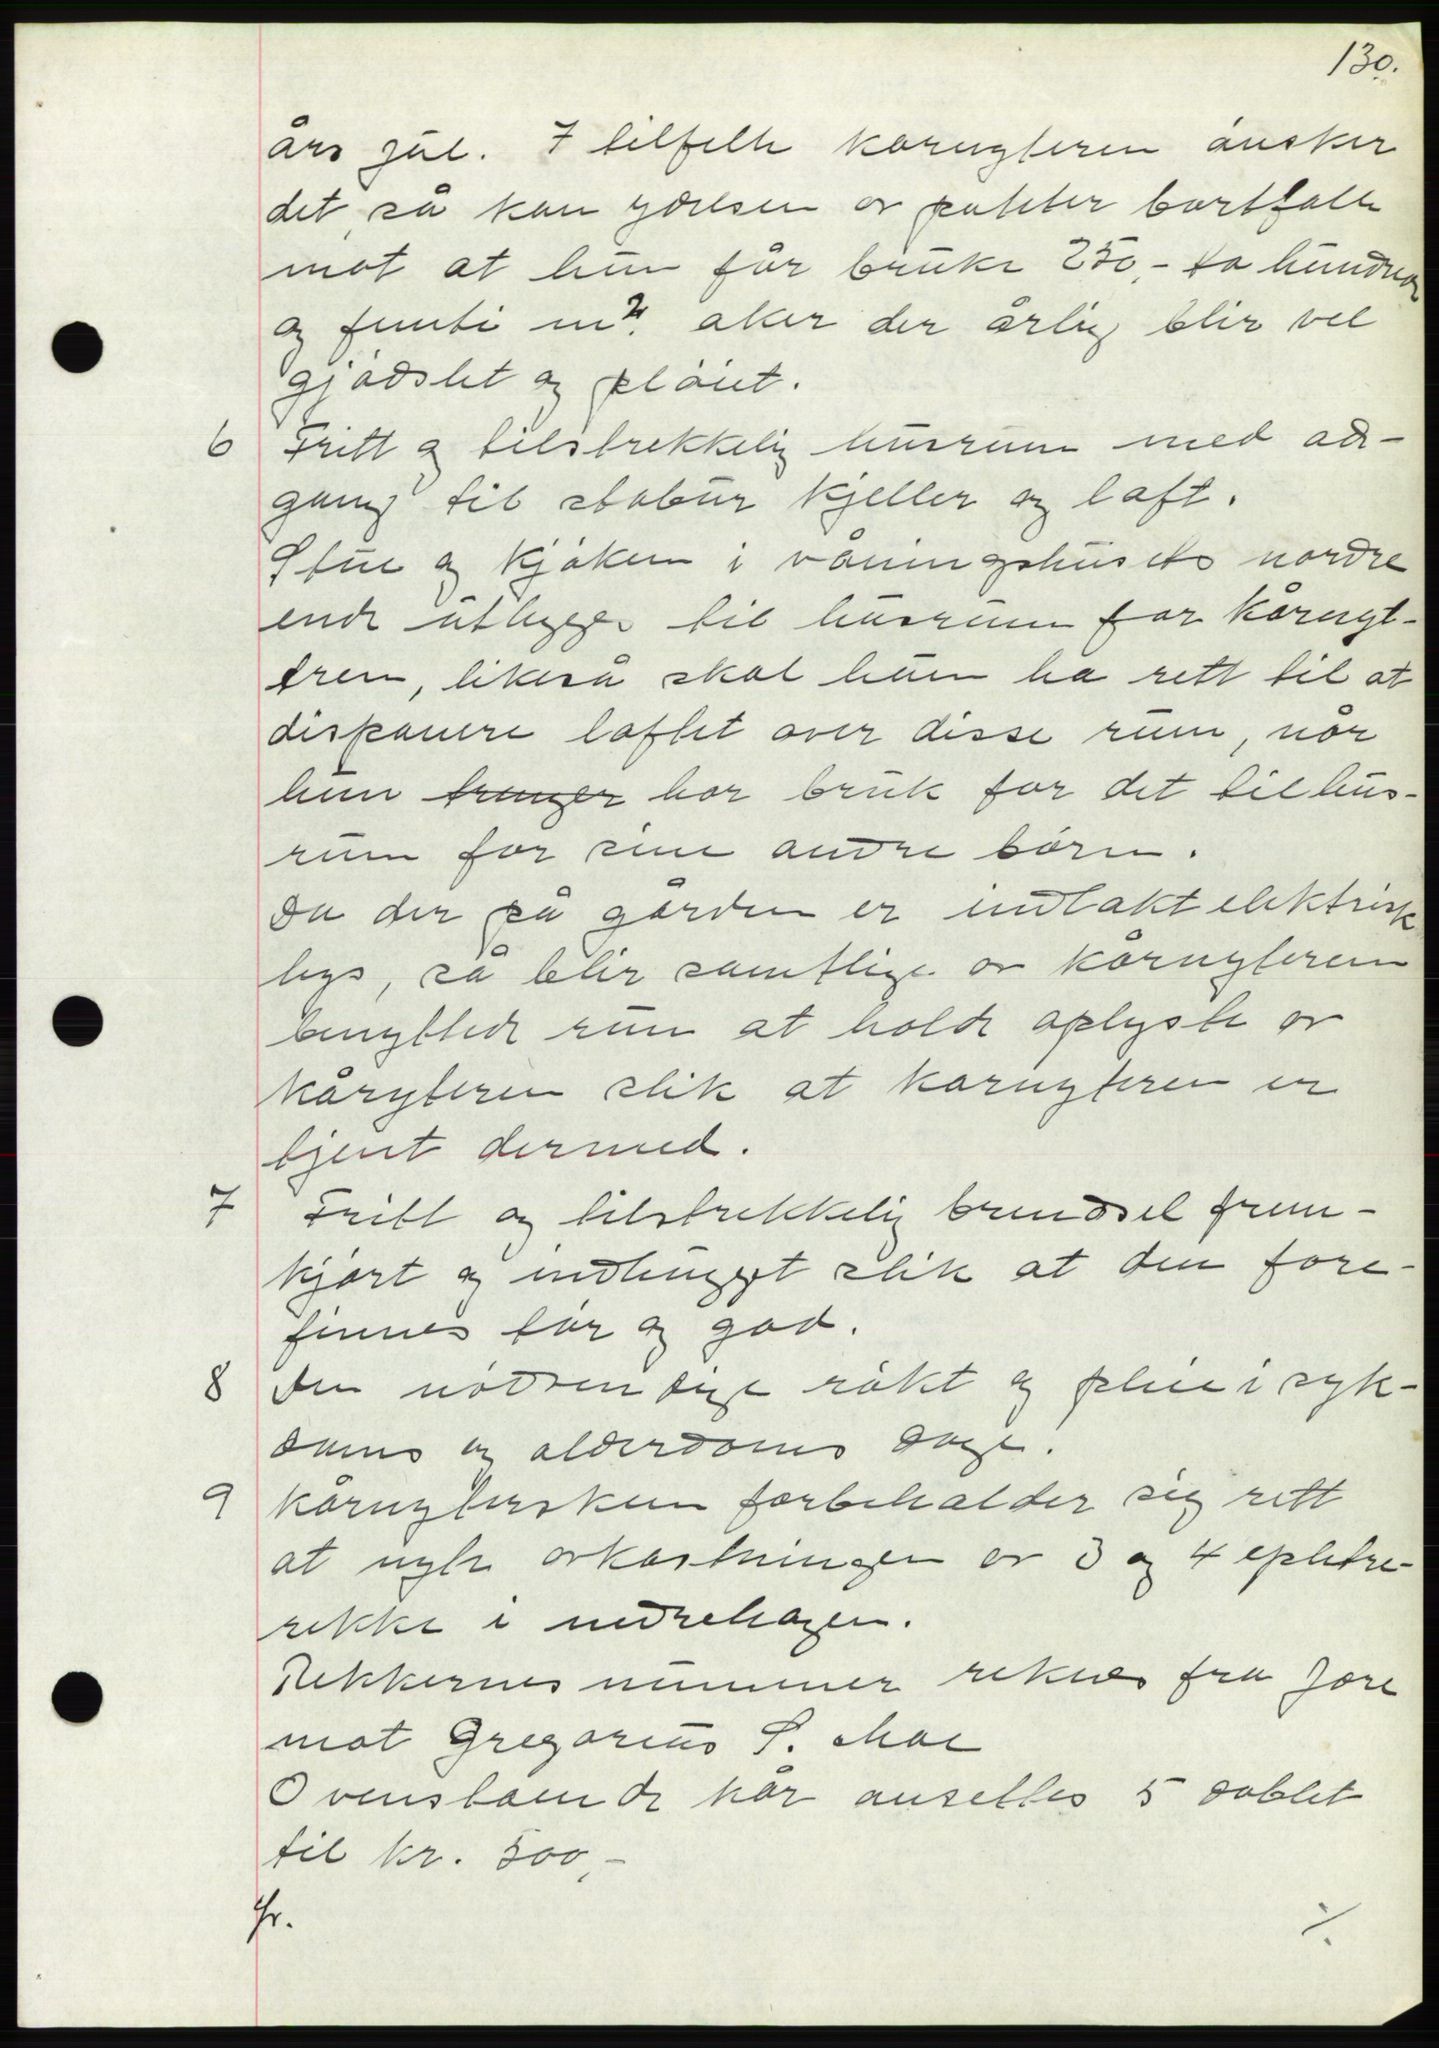 130.
års jul. I tilfelle kårnyteren ønsker
det, så kan ydelsen av poteter bortfalle
mot at hun får bruke 250,- to hundrede
og femti m². aker der årlig blir vel
gjødslet og pløiet.
6 Fritt og tilstrekkelig husrum med ad-
gang til stabur kjeller og loft.
Stue og kjøken i våningshusets nordre
ende utbygges til husrum for kårnyt-
eren, likeså skal hun ha rett til at
disponere loftet over disse rum, når
hun trenger har bruk for det til hus-
rum for sine andre børn.
Da der på gården er indlakt elektrisk
lys, så blir samtlige av kårnyteren
benyttede rum at holde oplyste av
kåryteren slik at kårnyteren er
tjent dermed.
7 Fritt og tilstrekkelig brendsel frem-
kjørt og indhugget slik at den fore-
finnes tør og god.
8 Den nødvendige røkt og pleie i syk-
doms og alderdoms dage.
9 Kårnytersken forbeholder sig rett
at nyte avkastningen av 3 og 4 epletre-
rekke i nedrehagen.
Rekkernes nummer reknes fra Jore
mot Gregorius S. Moe
Ovenstaende kår ansettes 5 doblet
til kr. 500,-
./.